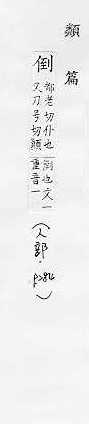 類篇
倒
都老切仆也
又刀号切顛
倒也文一
重音一
(人部.